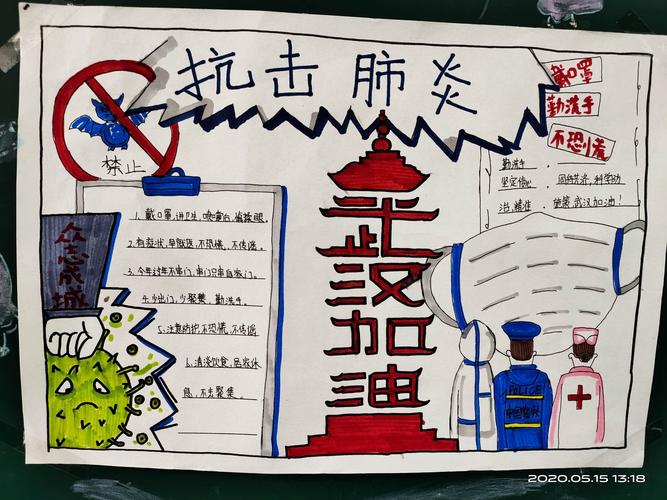 抗击肺炎
禁止
戴口罩
勤洗手
不恐慌
勤洗手
坚定信心 同舟共济,科学防
治,精准 施策,武汉加油!
众志成城
1.戴口罩,讲卫生,
2.有症状,早就医,不恐慌,不传谣。
3.今年过年不串门,串门只串自家门。
4.少出门,少聚集,勤洗手。
5.注意防护,不恐慌,不传谣
6.清淡饮食,
息,不去聚集。
武汉加油
POLICE
中国警察
2020.05.15 13:18